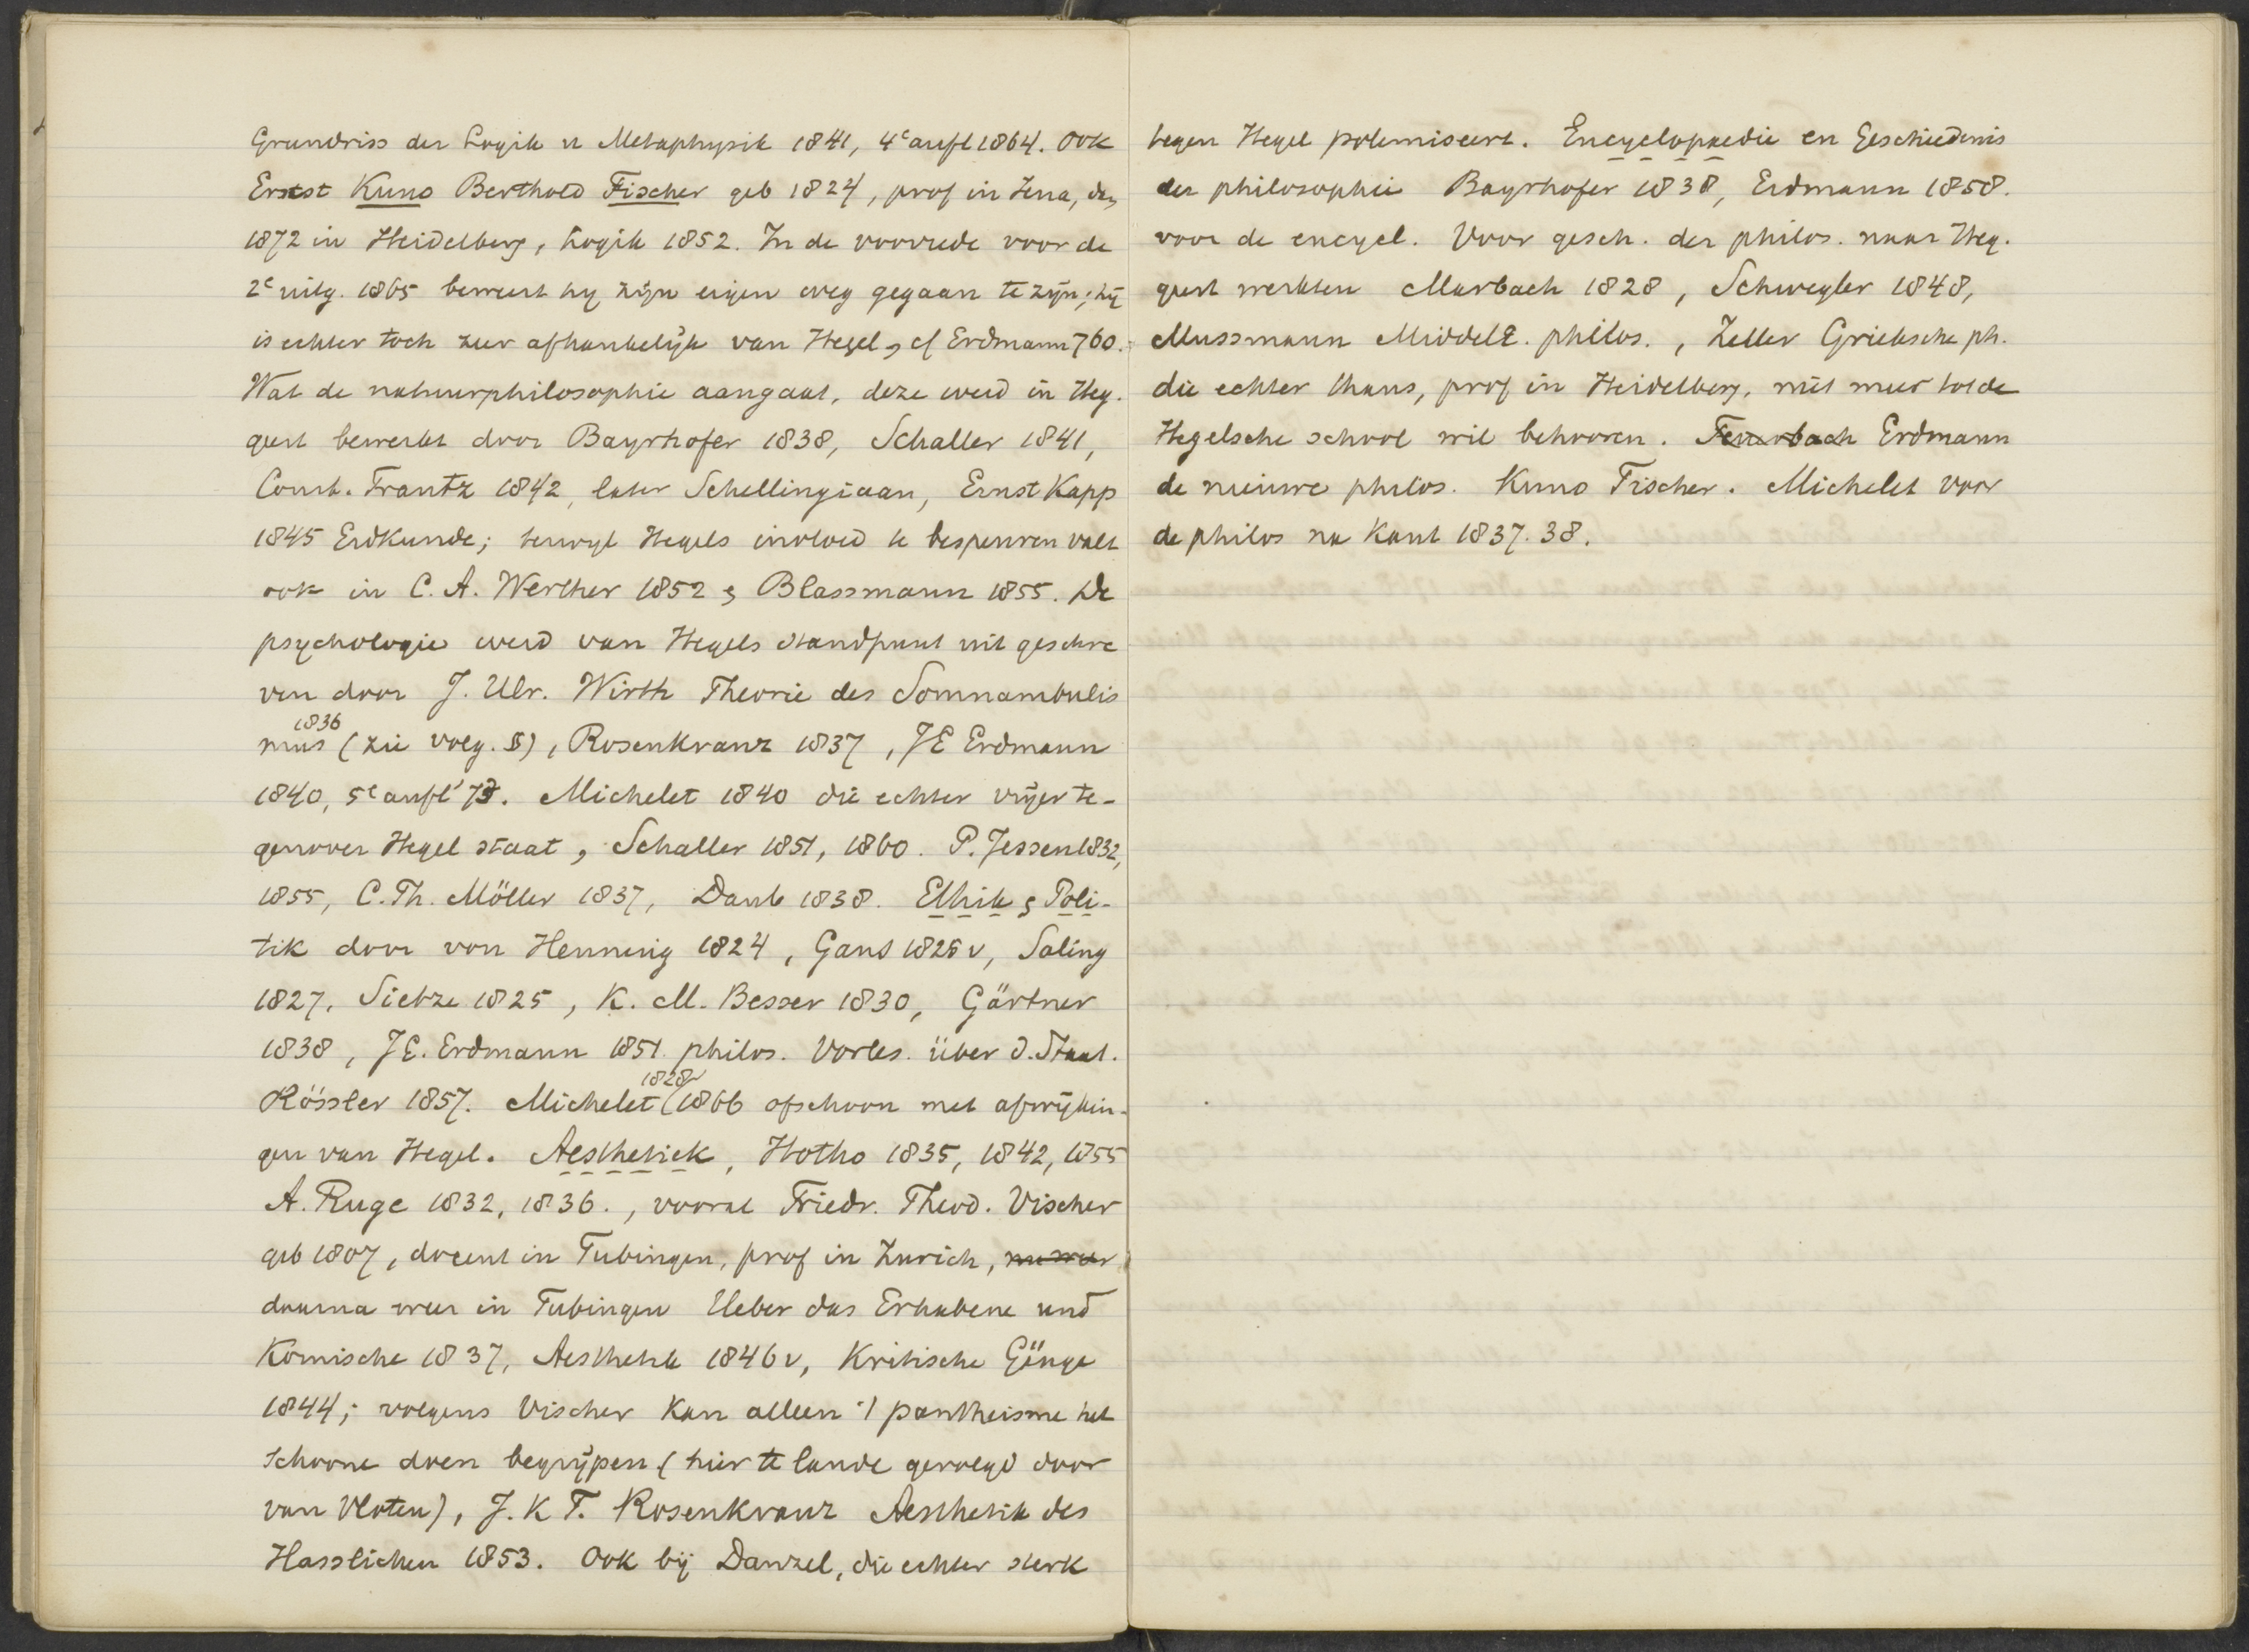 Grundriss der Logik u Metaphysik 1841, 4e aufl 1864. Ook
Ernst Kuno Berthold Fischer geb 1824, prof in Jena,
1872 in Heidelberg, Logik 1852. In de voorrede voor de
2e uitg. 1865 beweert hij zijn eigen weg gegaan te zijn; hij
is echter toch zeer afhankelijk van Hegel, cf Erdmann 760.
Wat de natuurphilosophie aangaat, deze werd in Heg.
geest bewerkt door Bayrhofer 1838, Schaller 1841,
Const. Frantz 1842, later Schellingiaan, Ernst Kapp
1845 Erdkunde; terwijl Hegels invloed te bespeuren valt
ook in C. A. Werther 1852 & Blassmann 1855. De
psychologie werd van Hegels standpunt uit geschre
ven door J. Ulr. Wirth Theorie des Somnambulis
1836
mus (zie volg. §), Rosenkranz 1837, JE Erdmann
1840, 5e aufl '73. Michelet 1840 die echter vrijer te-
genover Hegel staat, Schaller 1851, 1860. P. Jessen 1832,
1855, C. Th. Möller 1837, Daub 1838. Ethik & Poli-
tik door von Henning 1824, Gans 1825 v, Saling
1827, Sietze 1825, K. M. Besser 1830, Gärtner
1838, JE. Erdmann 1851 philos. Vorles. über d. Staat.
1828
Rössler 1857. Michelet 1866 ofschoon met afwijkin-
gen van Hegel. Aesthetiek, Hotho 1835, 1842, 1855
A. Ruge 1832, 1836., vooral Friedr. Theod. Vischer
geb 1807, docent in Tubingen, prof in Zurich,
daarna weer in Tubingen Ueber das Erhabene und
Komische 1837, Aesthetik 1846 v, Kritische Gänge
1844; volgens Vischer kan alleen 't pantheisme het
schoone doen begrijpen (hier te lande gevolgd door
van Vloten), J. K F. Rosenkranz Aesthetik des
Hasslichen 1853. Ook bij Danzel, die echter sterk
tegen Hegel polemiseert. Encyclopaedie en Geschiedenis
der philosophie Bayrhofer 1838, Erdmann 1858.
voor de encycl. Voor gesch. der philos. naar Heg.
geest werkten Marbach 1828, Schwegler 1848,
Mussmann Middele. philos., Zeller Grieksche ph.
die echter thans, prof in Heidelberg, niet meer tot de
Hegelsche school wil behooren. Feuerbach Erdmann
de nieuwe philos. Kuno Fischer. Michelet voor
de philos na Kant 1837. 38.